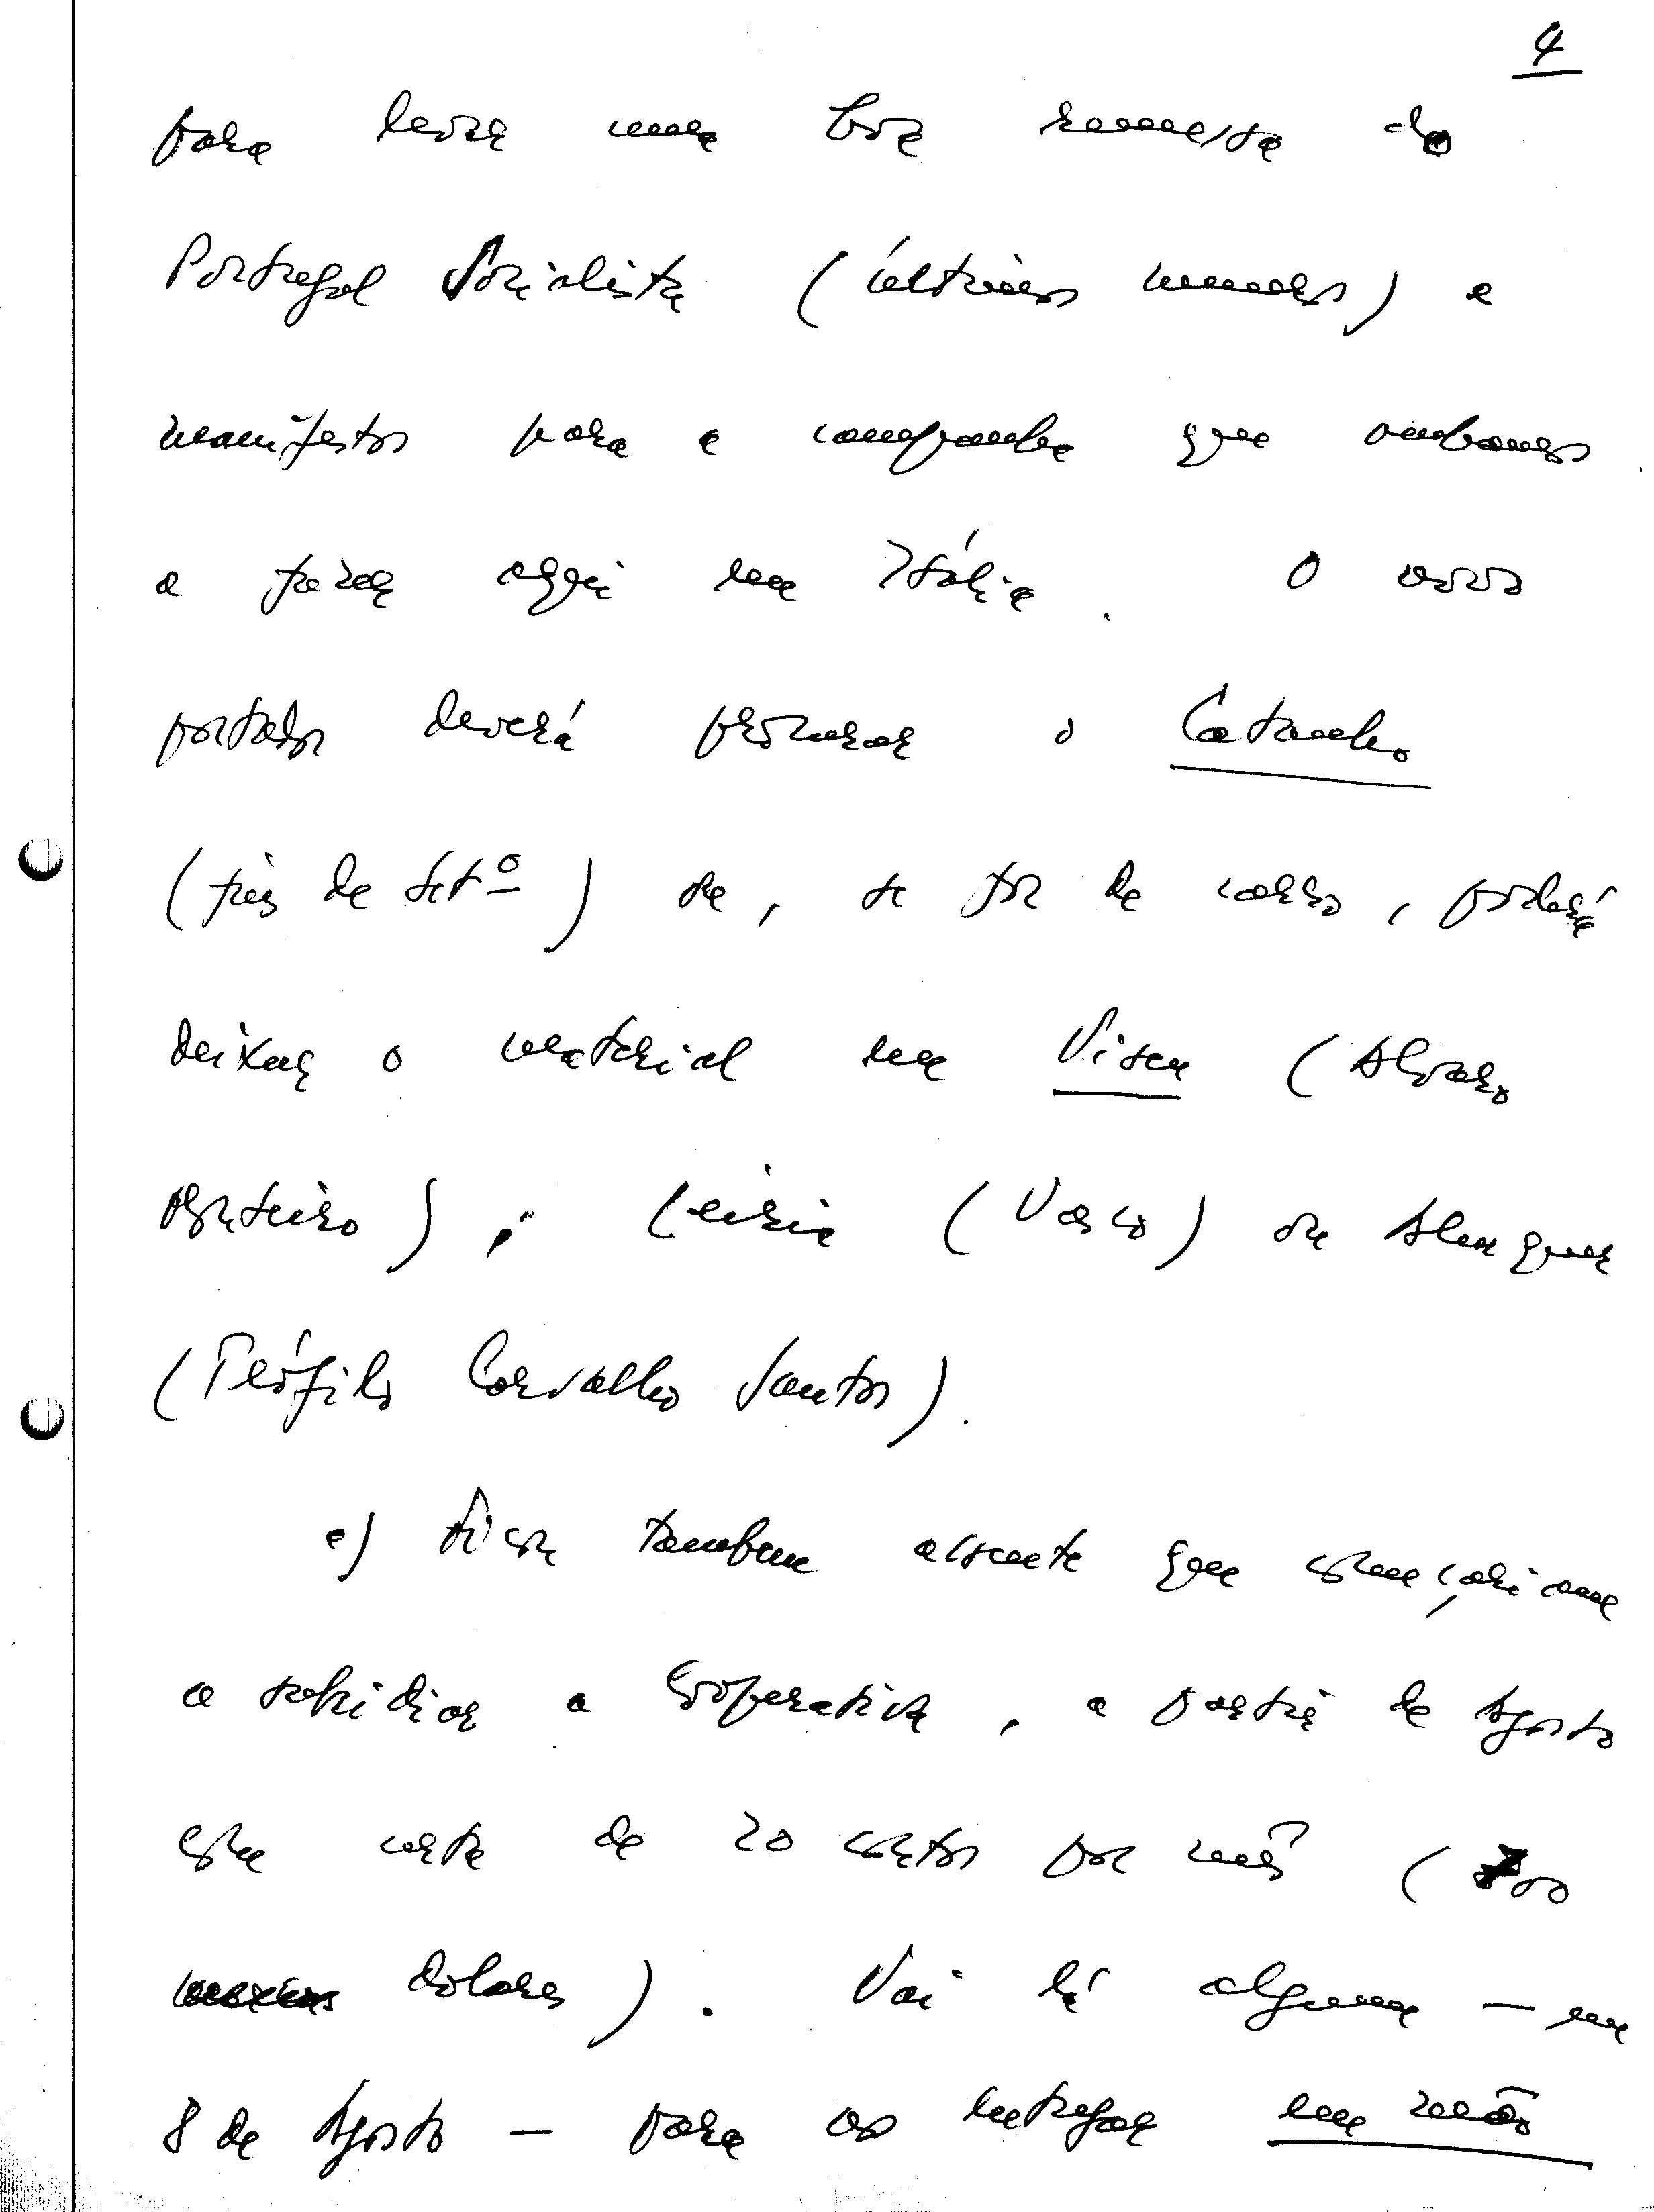 4
para levar uma boa remessa do
Portugal Socialista (últimos numeros) e
manifestos para a campanha que andamos
a fazer aqui em Itália. O vosso
portador deverá procurar o Catanho
(fins de Setº) ou, se for de carro, poderá
deixar o material em Viseu (Alvaro
Monteiro), Leiria (Vasco) ou Alenquer
(Teófilo Carvalho Santos).
e) Ficou tambem assente que começariam
a subsidiar a Cooperativa, a partir de Agosto
com cerca de 20 contos por mês (700
dolares). Vai lá alguem — em
8 de Agosto — para os entregar em mão